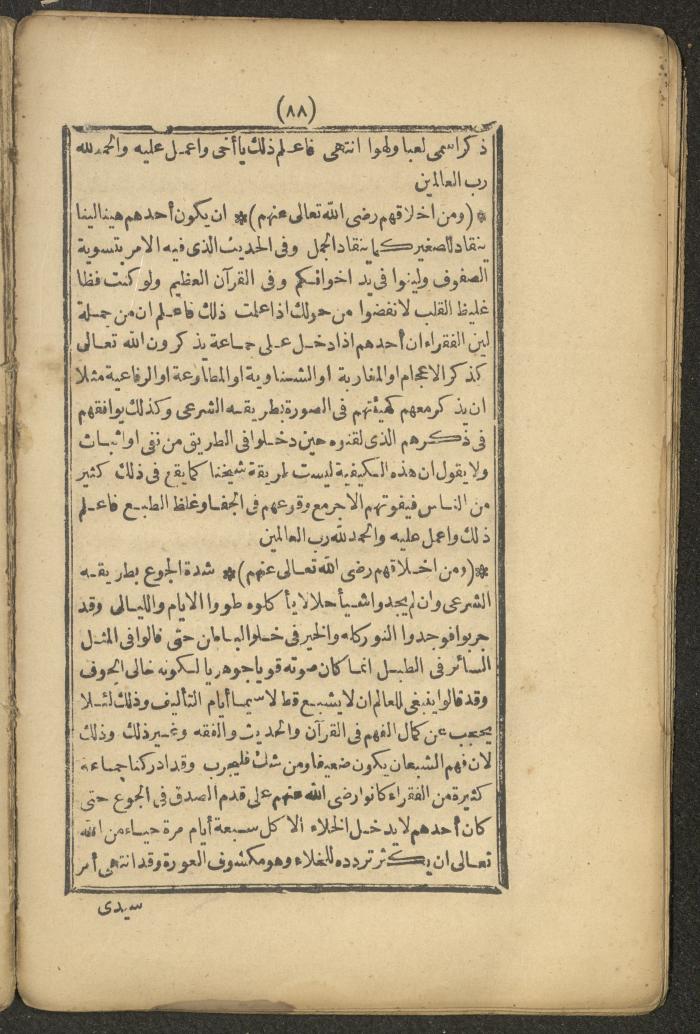 (٨٨)
ذكر اسمى لعبا ولهوا انتهى فاعلم ذلك يا أخى واعمل عليه والحمد لله
رب العالمين
* (ومن اخلاقهم رضى الله تعالى عنهم) * ان يكون أحدهم هينا لينا
ينقاد للصغير كما ينقاد الجمل وفى الحديث الذى فيه الامر بتسوية
الصفوف ولينوا فى يد اخوانكم وفى القرآن العظيم ولو كنت فظا
غليظ القلب لانفضوا من حولك اذا علمت ذلك فاعلم ان من جملة
لين الفقراء ان أحدهم اذا دخل على جماعة يذكرون الله تعالى
كذكر الاعجام او المغاربة او الشناوية او المطاوعة او الرفاعية مثلا
ان يذكر معهم كهيئتهم فى الصورة بطريقه الشرعى وكذلك يوافقهم
فى ذكرهم الذى لقنوه حين دخلوا فى الطريق من نفى او اثبات
ولا يقول ان هذه الكيفية ليست طريقة شيخنا كما يقع فى ذلك كثير
من الناس فيفوتهم الاجر مع وقوعهم فى الجفا وغلظ الطبع فاعلم
ذلك واعمل عليه والحمد لله رب العالمين
* (ومن اخلاقهم رضى الله تعالى عنهم) * شدة الجوع بطريقه
الشرعى وان لم يجدوا شيأ حلالا يأكلوه طووا الايام والليالى وقد
جربوا فوجدوا النور كله والخير فى خلو الباطن حتى قالوا فى المثل
السائر فى الطبل انما كان صوته قويا جوهريا لكونه خالى الجوف
وقد قالوا ينبغى للعالم ان لا يشبع قط لاسيما أيام التأليف وذلك لئلا
يحجب عن كمال الفهم فى القرآن والحديث والفقه وغير ذلك وذلك
لان فهم الشبعان يكون ضعيفا ومن شك فليجرب وقد ادركنا جماعة
كثيرة من الفقراء كانوا رضى الله عنهم على قدم الصدق فى الجوع حتى
كان أحدهم لا يدخل الخلاء الا كل سبعة أيام مرة حياء من الله
تعالى ان يكثر تردده للخلاء وهو مكشوف العورة وقد انتهى أمر
سيدى